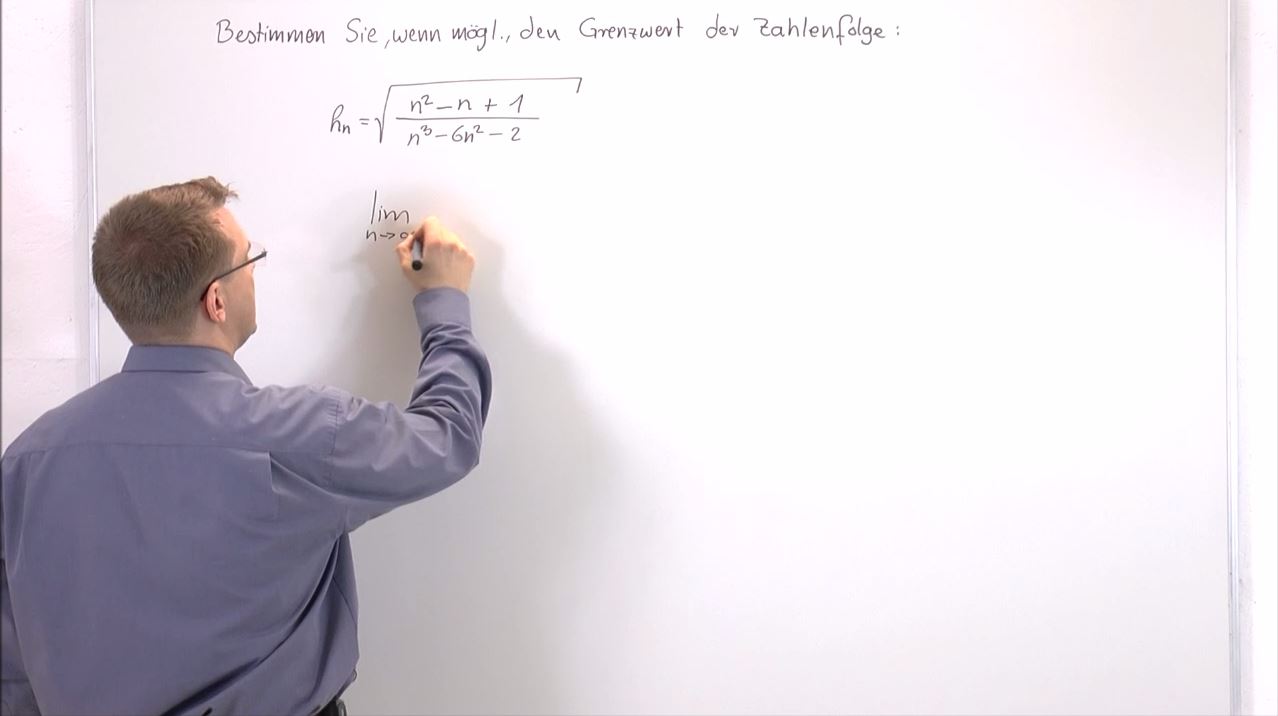 Bestimmen Sie, wenn mögl., den Grenzwert der Zahlenfolge:
hn = √ n² − n + 1
n³ − 6n² − 2
lim
n→